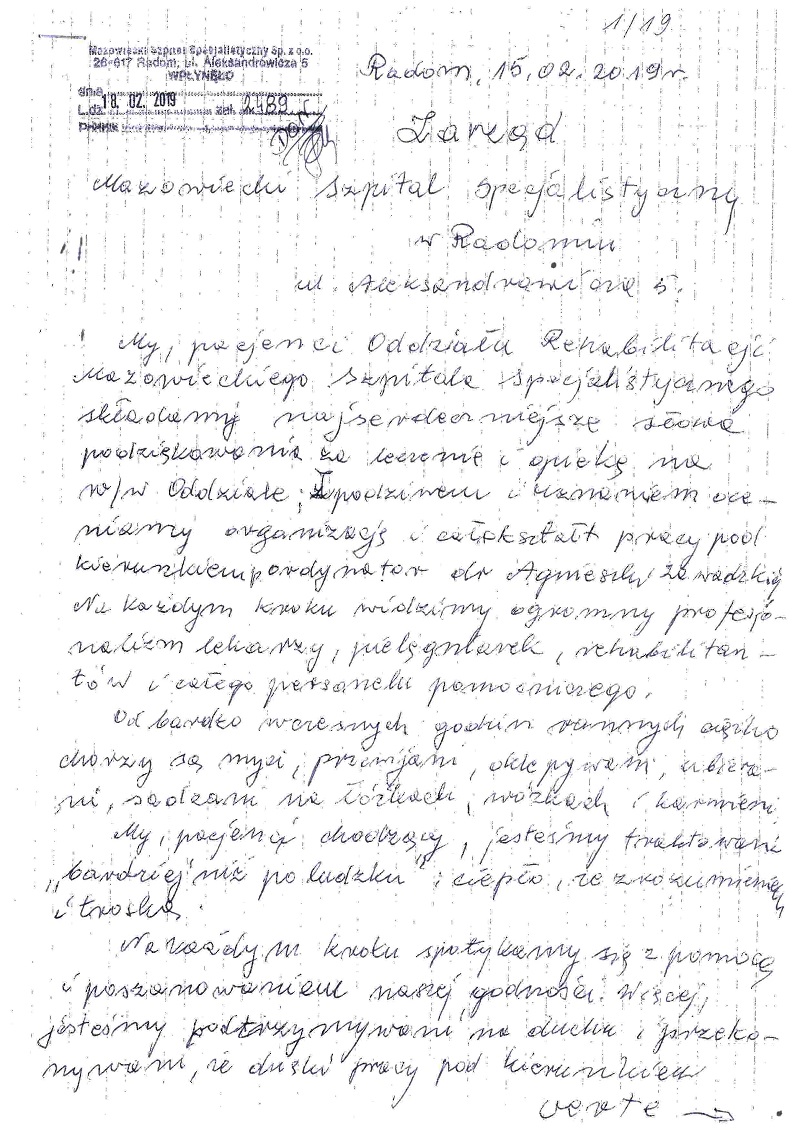 1/19
Mazowiecki Szpital Specjalistyczny Sp. z o.o.
26-617 Radom, ul. Aleksandrowicza 5
WPŁYNĘŁO
dnia 18. 02. 2019
L.dz. zał. 2489
Radom, 15.02.2019r.
Zarząd
Mazowiecki Szpital Specjalistyczny
w Radomiu
ul. Aleksandrowicza 5.
My, pacjenci Oddziału Rehabilitacji
Mazowieckiego Szpitala Specjalistycznego
składamy najserdeczniejsze słowa
podziękowania za leczenie i opiekę na
w/w Oddziale. Z podziwem i uznaniem oce-
niamy organizację i całokształt pracy pod
kierunkiem ordynator dr Agnieszki Zawadzkiej
Na każdym kroku widzimy ogromny profesjo-
nalizm lekarzy, pielęgniarek, rehabilitan-
tów i całego personelu pomocniczego.
Od bardzo wczesnych godzin rannych ciężko
chorzy są myci, przewijani, oklepywani, ubiera-
ni, sadzani na łóżkach, wózkach i karmieni.
My, pacjenci chodzący, jesteśmy traktowani
"bardziej niż po ludzku" i ciepło, ze zrozumieniem
i troską.
Na każdym kroku spotykamy się z pomocą
i poszanowaniem naszej godności. Więcej,
jesteśmy podtrzymywani na duchu i przeko-
nywani, że dzięki pracy pod kierunkiem
verte →